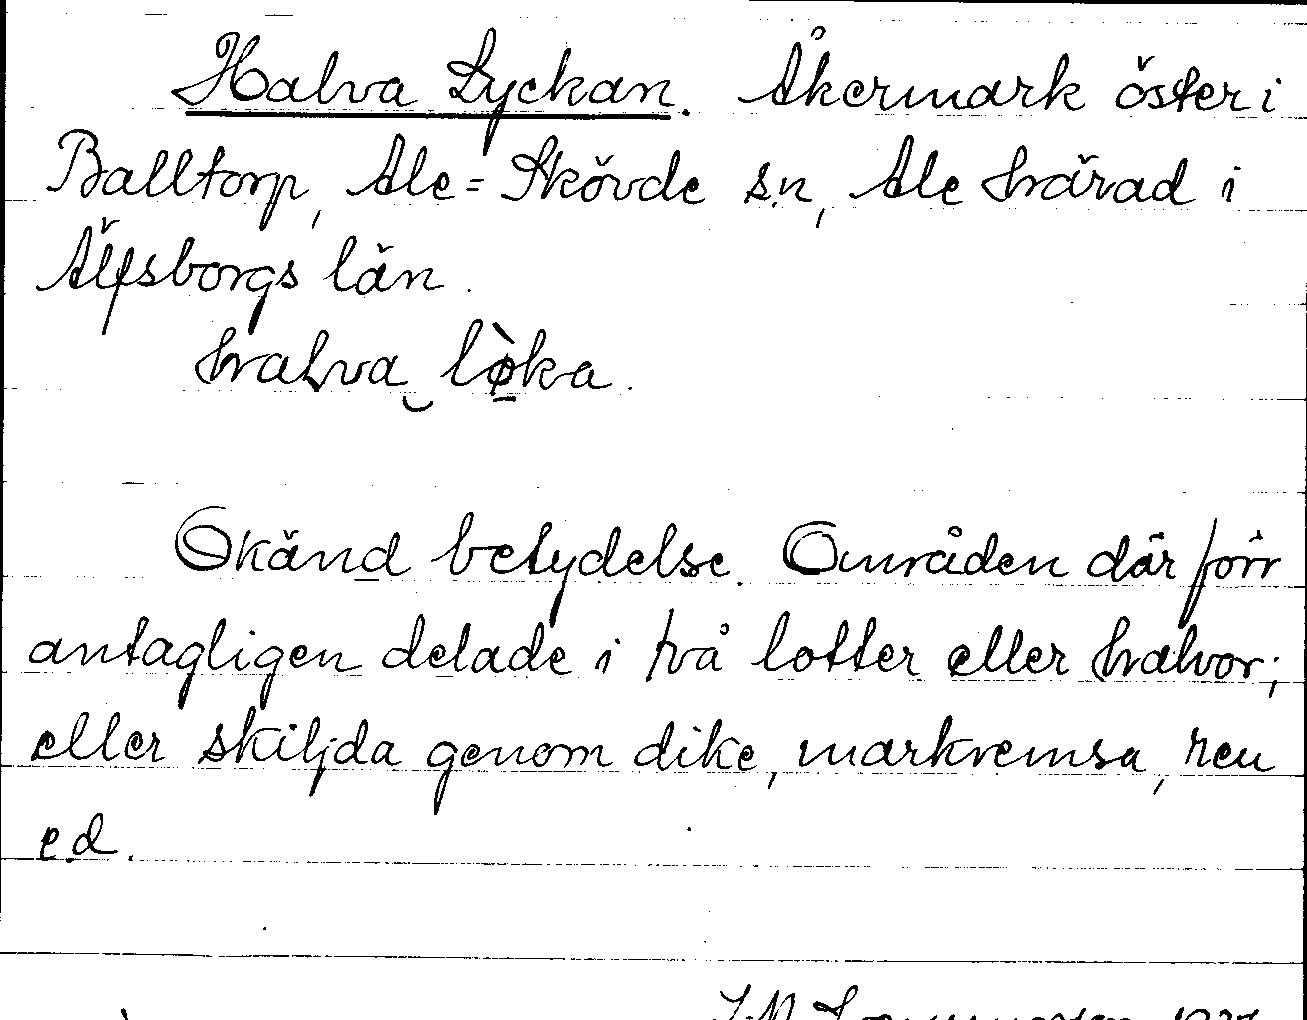 Halva Lyckan. Åkermark öster i
Balltorp, Ale=Skövde s.n, Ale härad i
Älfsborgs län.
halva lø̀ka.
Okänd betydelse. Områden där förr
antagligen delade i två lotter eller halvor;
eller skiljda genom dike, markremsa, ren
e.d.